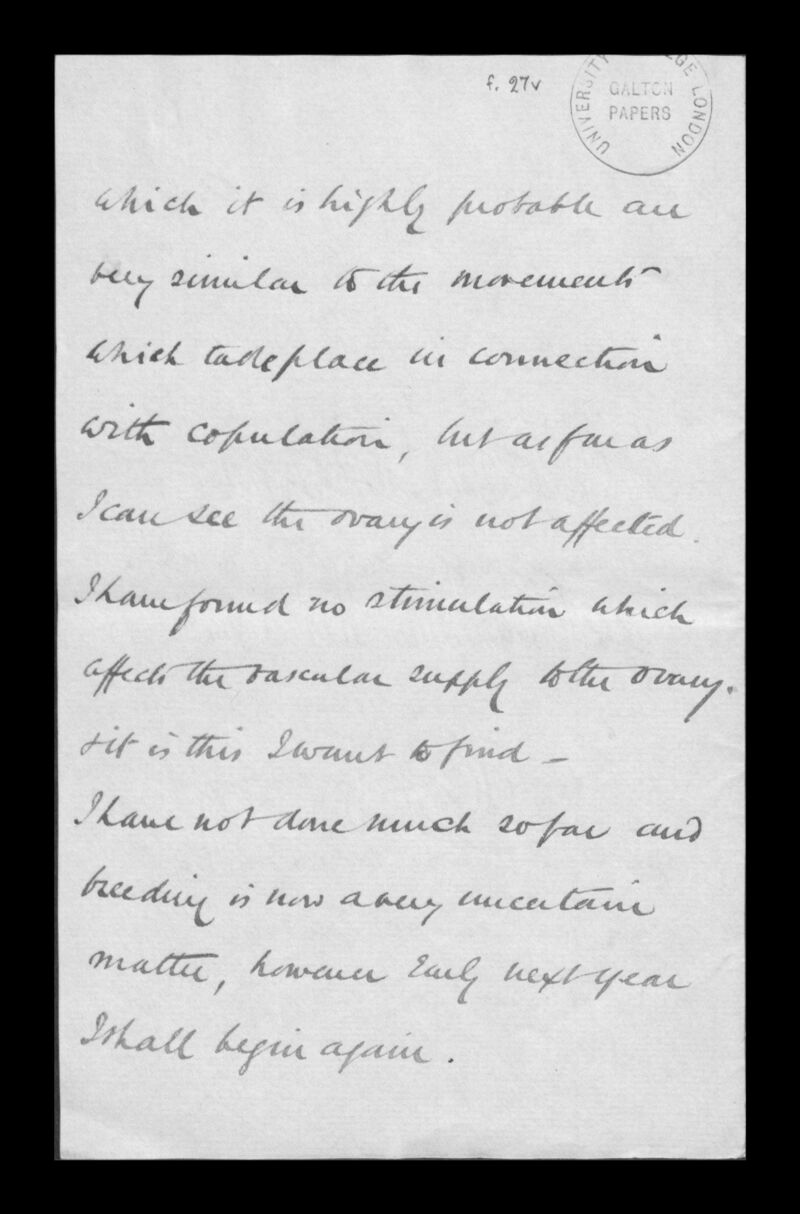 f. 27v
UNIVERSITY COLLEGE LONDON
GALTON
PAPERS
which it is highly probable are
very similar to the movements
which take place in connection
with copulation, but as far as
I can see the ovary is not affected.
I have found no stimulation which
affects the vascular supply to the ovary.
& it is this I want to find –
I have not done much so far and
breeding is now a very uncertain
matter, however Early next year
I shall begin again.